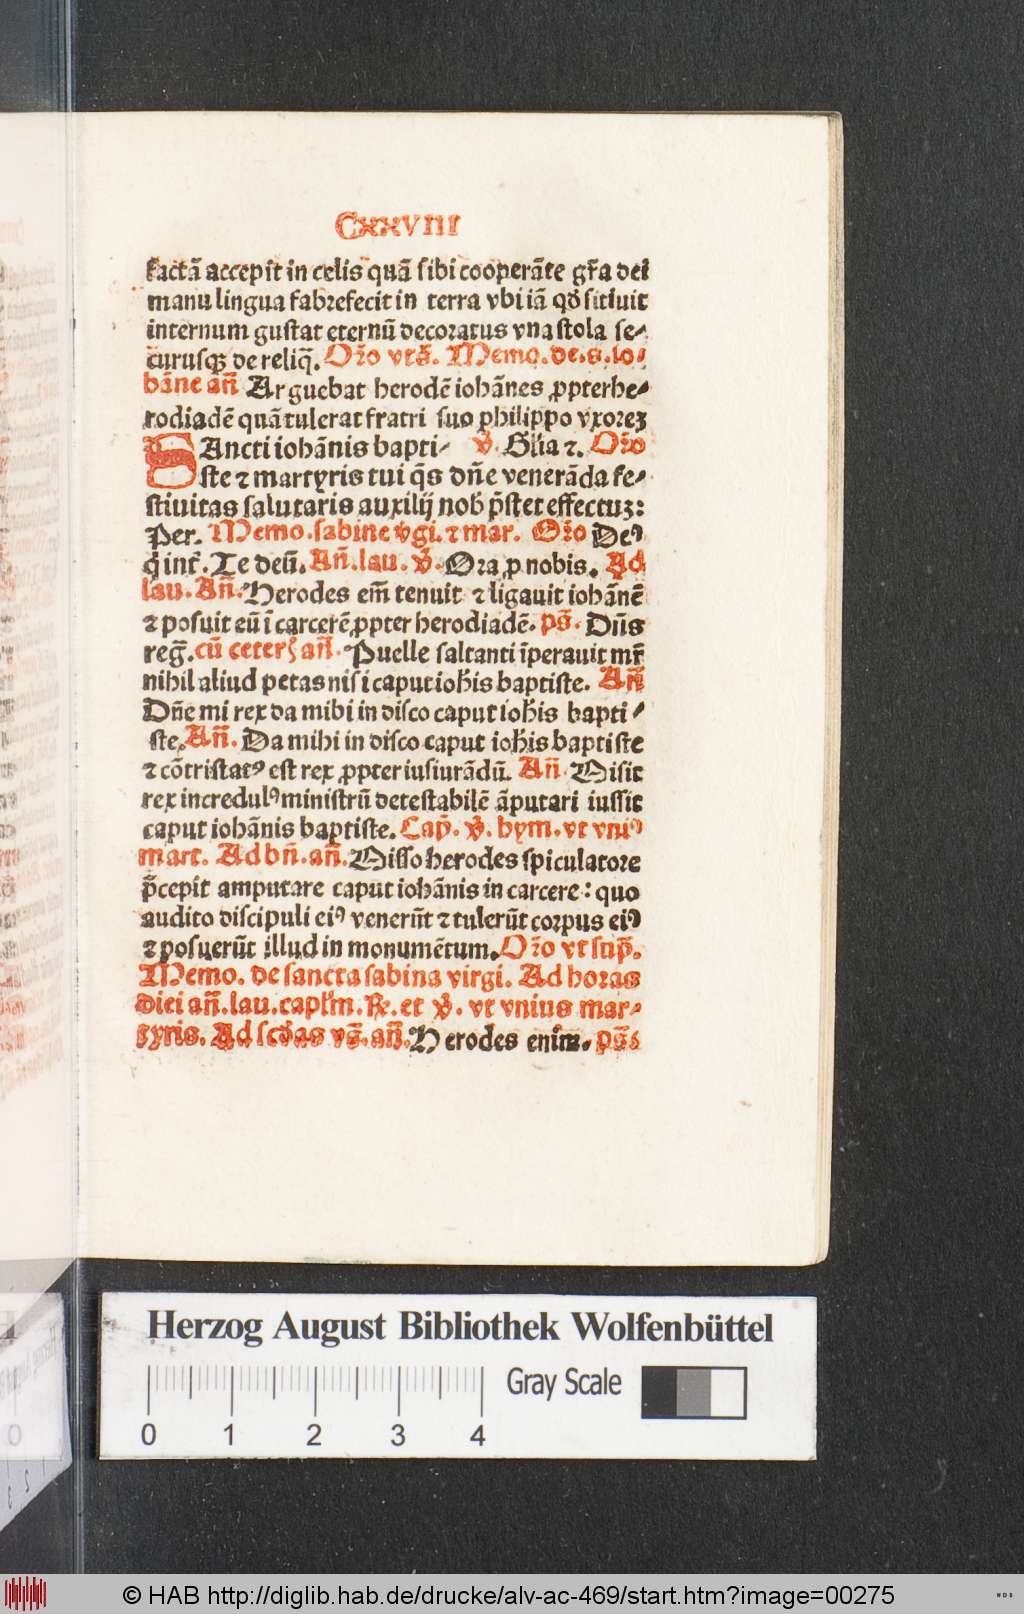 Cxxviii
factā accepit in celis quā sibi cooperāte gr̄a dei
manu lingua fabrefecit in terra vbi iā qd̕ sitiuit
internum gustat eternū decoratus vna stola se⸗
curusq̄ de reliq̄. Or̄o vts̄. Memo. de. s. Io⸗
hāne an̄ Arguebat herodē iohānes ꝓpter he⸗
rodiadē quā tulerat fratri suo philippo vxorez
SAncti iohānis bapti⸗ ꝟ. Gl̄ia ⁊. Or̄o
ste ⁊ martyris tui q̄s dn̄e venerāda fe⸗
stiuitas salutaris auxilij nob̕ p̄stet effectuz:
Per. Memo. sabine v̕gi. ⁊ mar. Or̄o Deꝰ
q̇ int̕. Te deū. An̄. lau. ꝟ. Ora ꝓ nobis. Ad
lau. An̄. Herodes em̄ tenuit ⁊ ligauit iohānē
⁊ posuit eū ī carcerē ꝓpter herodiadē. ps̄. Dn̄s
reḡ. cū ceteris an̄. Puelle saltanti īperauit mr̄
nihil aliud petas nisi caput ioh̄is baptiste. An̄
Dn̄e mi rex da mihi in disco caput ioh̄is bapti⸗
ste. An̄. Da mihi in disco caput ioh̄is baptiste
⁊ cōtristatꝰ est rex ꝓpter iusiurādū. An̄. Misit
rex incredulꝰ ministrū detestabilē āputari iussit
caput iohānis baptiste. Cap̄. ꝟ. hym. vt vniꝰ
mart. Ad bn̄. an̄. Misso herodes spiculatore
p̄cepit amputare caput iohānis in carcere: quo
audito discipuli eiꝰ venerūt ⁊ tulerūt corpus eiꝰ
⁊ posuerūt illud in monumētum. Or̄o vt sup̄.
Memo. de sancta sabina virgi. Ad horas
diei an̄. lau. capl̄m. ℟. et ꝟ. vt vnius mar⸗
tyris. Ad scd̕as vs̄. an̄. Herodes enim. ps̄s
Herzog August Bibliothek Wolfenbüttel
Gray Scale
0 1 2 3 4
© HAB http://diglib.hab.de/drucke/alv-ac-469/start.htm?image=00275